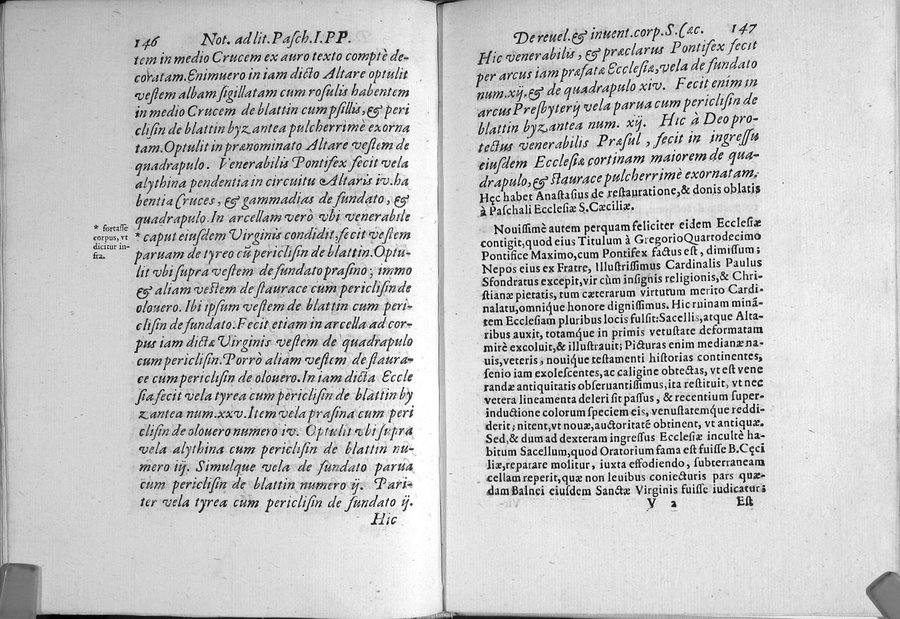 146 Not. ad lit. Pasch. I. PP.
tem in medio Crucem ex auro texto comptè de-
coratam. Enimuero in iam dicto Altare optulit
vestem albam sigillatam cum rosulis habentem
in medio Crucem de blattin cum psillis, & peri
clisin de blattin byzantea pulcherrimè exorna
tam. Optulit in prænominato Altare vestem de
quadrapulo. Venerabilis Pontifex fecit vela
alythina pendentia in circuitu Altaris iv. ha
bentia Cruces, & gammadias de fundato, &
quadrapulo. In arcellam verò vbi venerabile
* caput eiusdem Virginis condidit, fecit vestem
paruam de tyreo cū periclisin de blattin. Optu-
lit vbi supra vestem de fundato prasino; immo
& aliam vestem de staurace cum periclisin de
olouero. Ibi ipsum vestem de blattin cum peri-
clisin de fundato. Fecit etiam in arcella ad cor-
pus iam dictæ Virginis vestem de quadrapulo
cum periclisin. Porrò aliam vestem de staura-
ce cum periclisin de olouero. In iam dicta Eccle
sia fecit vela tyrea cum periclisin de blattin by
zantea num. xxv. Item vela prasina cum peri
clisin de olouero numero iv. Optulit vbi supra
vela alythina cum periclisin de blattin nu-
mero iij. Simulque vela de fundato parua
cum periclisin de blattin numero ij. Pari-
ter vela tyrea cum periclisin de fundato ij.
Hic
* fortasse
corpus, vt
dicitur in-
fra.
De reuel. & inuent. corp. S. Cæc. 147
Hic venerabilis, & præclarus Pontifex fecit
per arcus iam præfatæ Ecclesiæ, vela de fundato
num. xij. & de quadrapulo xiv. Fecit enim in
arcus Presbyterij vela parua cum periclisin de
blattin byzantea num. xij. Hic à Deo pro-
tectus venerabilis Præsul, fecit in ingressu
eiusdem Ecclesiæ cortinam maiorem de qua-
drapulo, & staurace pulcherrimè exornatam.
Hęc habet Anastasius de restauratione, & donis oblatis
à Paschali Ecclesiæ S. Cæciliæ.
Nouissimè autem perquam feliciter eidem Ecclesiæ
contigit, quod eius Titulum à Gregorio Quartodecimo
Pontifice Maximo, cum Pontifex factus est, dimissum;
Nepos eius ex Fratre, Illustrissimus Cardinalis Paulus
Sfondratus excepit, vir cùm insignis religionis, & Chri-
stianæ pietatis, tum cæterarum virtutum merito Cardi-
nalatu, omnique honore dignissimus. Hic ruinam minā-
tem Ecclesiam pluribus locis fulsit: Sacellis, atque Alta-
ribus auxit, totamque in primis vetustate deformatam
mirè excoluit, & illustrauit; Picturas enim medianæ na-
uis, veteris, nouique testamenti historias continentes,
senio iam exolescentes, ac caligine obtectas, vt est vene
randæ antiquitatis obseruantissimus, ita restituit, vt nec
vetera lineamenta deleri sit passus, & recentium super-
inductione colorum speciem eis, venustatemque reddi-
derit; nitent, vt nouæ, auctoritatē obtinent, vt antiquæ.
Sed, & dum ad dexteram ingressus Ecclesiæ incultè ha-
bitum Sacellum, quod Oratorium fama est fuisse B. Cęci
liæ, reparare molitur, iuxta effodiendo, subterraneam
cellam reperit, quæ non leuibus coniecturis pars quæ-
dam Balnei eiusdem Sanctæ Virginis fuisse iudicatur;
V 2 Est